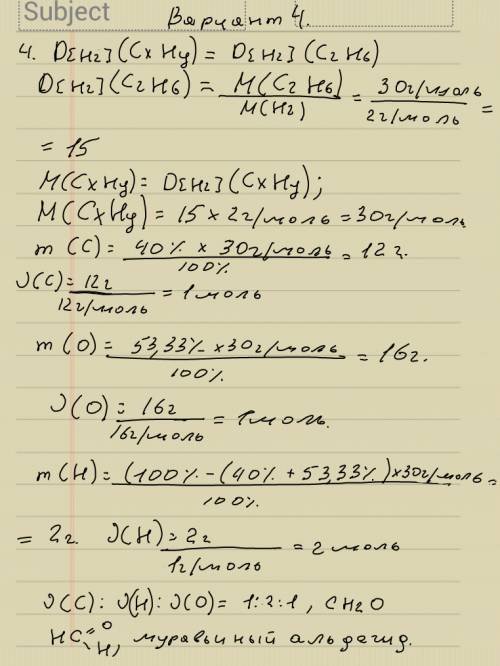 Subject
Вариант 4.
4. D[H2](CxHy) = D[H2](C2H6)
D[H2](C2H6) = M(C2H6)/M(H2) = 30г/моль/2г/моль =
= 15
M(CxHy) = D[H2](CxHy);
M(CxHy) = 15 × 2г/моль = 30г/моль
m(C) = 40% × 30г/моль/100% = 12 г.
ν(C) = 12г/12г/моль = 1 моль
m(O) = 53,33% × 30г/моль/100% = 16г.
ν(O) = 16г/16г/моль = 1 моль.
m(H) = (100% - (40% + 53,33%) × 30г/моль/100% =
= 2г. ν(H) = 2г/1г/моль = 2 моль
ν(C) : ν(H) : ν(O) = 1:2:1, CH2O
HC=O H, муравьиный альдегид.